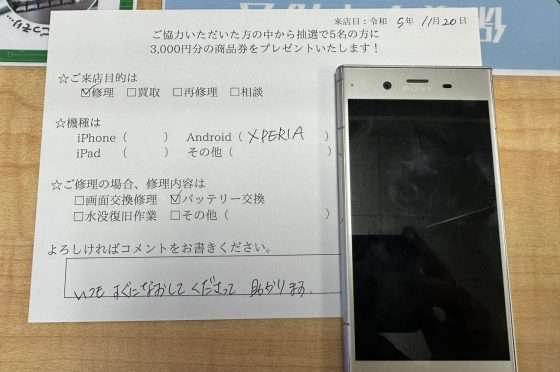 来店日:令和 5年 11月20日
ご協力いただいた方の中から抽選で5名の方に
3,000円分の商品券をプレゼントいたします!
☆ご来店目的は
☑修理 □買取 □再修理 □相談
☆機種は
iPhone( ) Android( XPERIA )
iPad ( ) その他( )
☆ご修理の場合、修理内容は
□画面交換修理 ☑バッテリー交換
□水没復旧作業 □その他( )
よろしければコメントをお書きください。
いつも すぐになおして くださって 助かります.
SONY